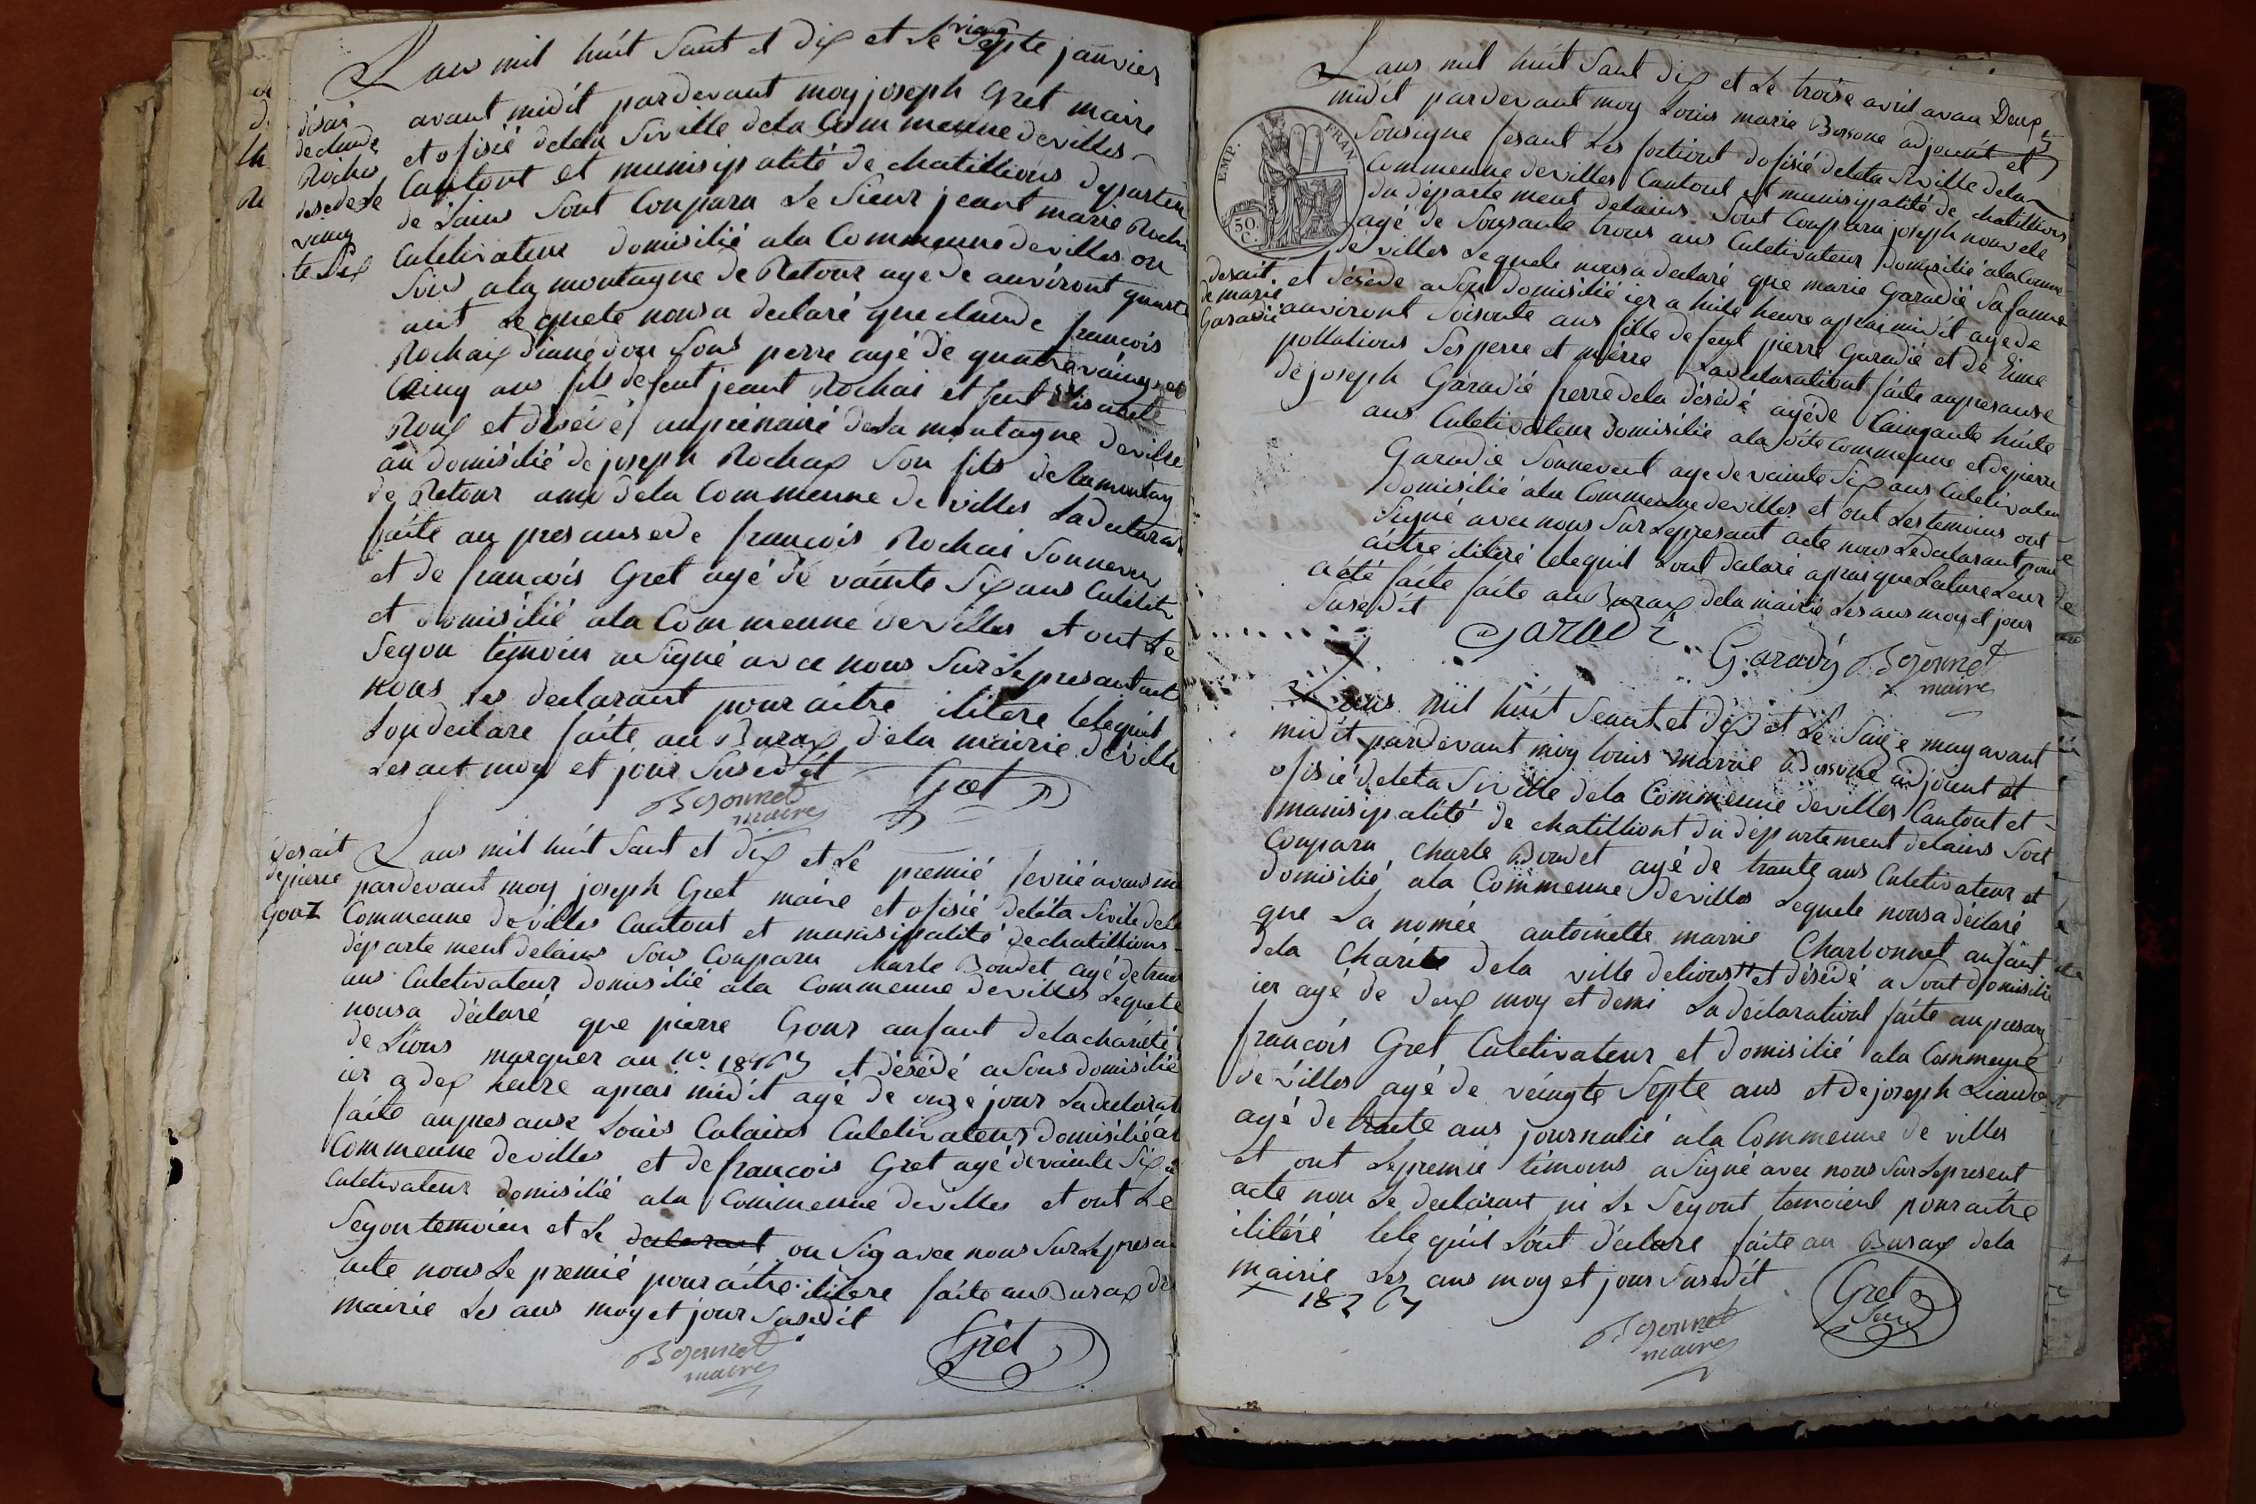 Lans mil huit Sant et dix et le vieng Septe janvier
avant midit pardevant moy joseph Gret maire
et ofisié deleta Siville dela Commeune devilles
Cantont et munisipalité de chatillions departem
de Lains Sont Conparu Le Sieur jeant marie Rocha
Culetivateur domisilié ala Commeune devilles ou
Sive ala montagne de Retour agé de anviront quarte
ant Lequele nousa declaré que claude francois
Rochaix Sons perre agé de quatre vaing et
Caing ans fils defeut jeant Rochai et feut
Roux et désédé de la montagne deville
au domisilié de joseph Rochax Son fils delamontag
de Retour dela Commeune de villes Ladeclarat
faite au presanse de francois Rochai Sonneveu
et de francois Gret agé de vainte Six ans Culetiv
et domisilié ala Commeune devilles et ont Le
Segon témoin a Signé avce nous Surlepresant acte
nous Les declarant pouraitre ilitere telequil
Londeclare faite au Burax dela mairie deville
Lesant moy et jour Susedit
Begonnet
maire
Gret
désai
declaude
Rochai
desedele
vieng
Lans mil huit Sant et dix et Le premié fevrié avant mi
pardevant moy joseph Gret maire et ofisié deléta Sivile dela
Commeune devilles Cantont et munisipalité dechatillions
département delains Sons Conparu Charle Boudet agé detrante
ans Culetivateur domisilié ala Commeune devilles Lequele
nousa déclaré que pierre Gour anfant delacharété
de Lions marquer au no. et désédé aSons domisilié
ier a dex heure aprai midit agé de onze jour Ladeclarat
faite aupresanse Louis Culetivateur domisilié al
Commeune devilles et de francois Gret agé devainte Six a
Culetivateur domisilié ala Commeune devilles et ont Le
Segontemoien et Le declarant on Sig avce nous Surlepresa
acte nous Le premié pouraitre ilitere faite au Burax de
mairie Les ans moy et jour Susedit
Begonnet
maire
Gret
desait
depierre
Gour
Lans mil huit Sant dix et Le troise avril avan Deux
midit pardevant moy Louis marie adjouint et
Sousigne fesant Les fontiont dofisié deleta Siville dela
Commeune devilles Cantont et munisipalité de chatillions
du departement delains Sont Conparu joseph nouvele
agé de Sonsante trous ans Culetivateur Domisilié alaComme
de villes Lequele nousa declaré que marie Garadié Safamme
et désédé aSon domisilié ier a huite heure aprai midit agé de
anviront Soisonte ans fille defeut pierre Garadié et de
pollations Ses perre et mérre Ladeclarationt faite aupresanse
dejoseph Garadié frerre dela désédé agéde Cainqante huite
ans Culetivateur Domisilié ala dite commeune et depierre
Garadie Sonneveut agedevainte Six ans Culetivateur
domisilié ala Commeune devilles et ont Les temoins ont
Signé avec nous Sur Lepresant acte nous Ledeclarant pour
aitre ilitéré telequil Lont déclaré aprai que Lature Leur
a été faite faite au Burax dela mairie Les ans moy et jour
Susedit
Garadi
Garady
Begonnet
maire
EMP. FRAN.
50. C.
desait
de marie
Garadié
Lans mil huit Seant et dix et Le Saize may avant
midit pardevant moy Louis marie adjouint et
ofisié deleta Siville dela Commeune devilles Cantont et
munisipalité de chatilliont du département delains Sort
Conparu Charle Boudet agé de trante ans Culetivateur et
domisilié ala Commeune devilles Lequele nousa déclaré
que La nomée antoinette marrie Charbonnet anfant
dela Charite dela ville delions et désédé a Sont domisilié
ier agé de deux moy et demi La déclarationt faite aupresan
francois Gret Culetivateur et domisilié ala Commeune
devilles agé de veingte Septe ans et de joseph
agé de trante ans journalié ala Commeune de villes
et ont Lepremie témoins a Signé avec nous Surlepresent
acte non Le declarant ni Le Segont temoient pouraitre
ilitéré telequil Lont déclare faite au Burax dela
mairie Les ans moy et jour Susedit
Begonnet
maire
Gret